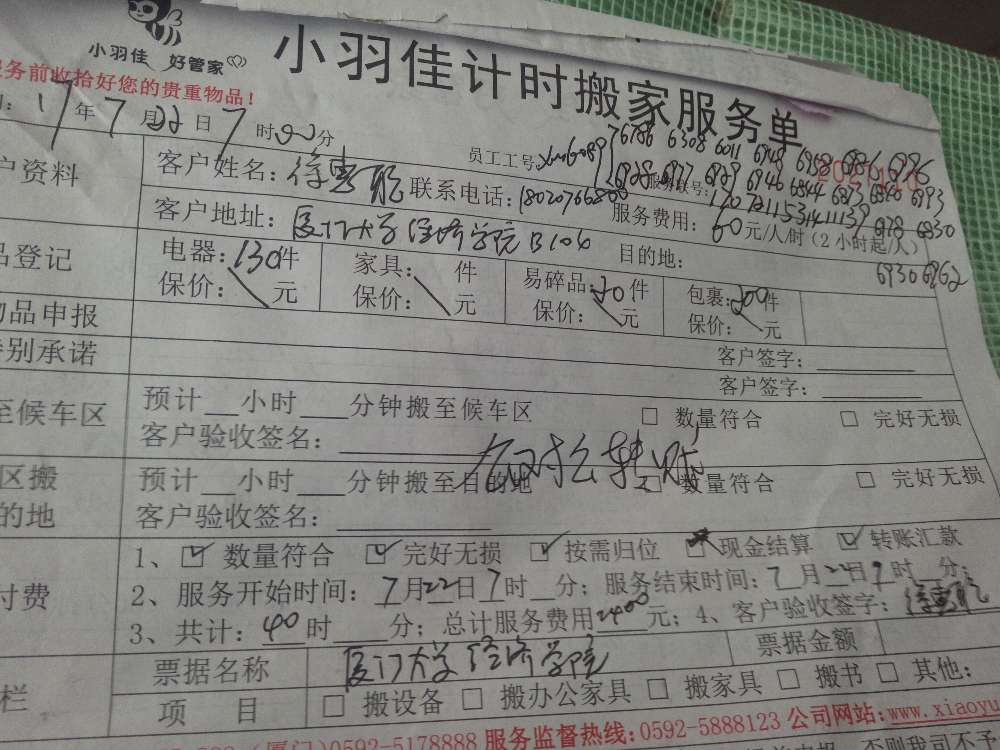 小羽佳 好管家
小羽佳计时搬家服务单
务前收拾好您的贵重物品!
17年7月22日7时00分
员工工号: xm6089 6786 6308 6011 6948 6958 6886 6996
户资料
客户姓名: 徐惠 联系电话: 18020766800
客户地址: 厦门大学经济学院B106 目的地:
服务费用: 60元/人/时(2小时起/人)
6930 6962
品登记
电器: 130件 家具: 件 易碎品: 20件 包裹: 200件
保价: 元 保价: 元 保价: 元 保价: 元
物品申报
客户签字:
特别承诺
客户签字:
至候车区
预计 小时 分钟搬至候车区 □ 数量符合 □ 完好无损
客户验收签名:
区搬
的地
预计 小时 分钟搬至目的地 □ 数量符合 □ 完好无损
客户验收签名:
付费
1、☑ 数量符合 ☑ 完好无损 ☑ 按需归位 现金结算 ☑ 转账汇款
2、服务开始时间: 7月22日7时 分; 服务结束时间: 7月22日9时 分;
3、共计: 40时 分; 总计服务费用2400元; 4、客户验收签字: 徐惠
栏
票据名称 厦门大学经济学院 票据金额
项 目 □ 搬设备 □ 搬办公家具 □ 搬家具 □ 搬书 □ 其他:
(厦门)0592-5178888 服务监督热线:0592-5888123 公司网站:www.xiaoyu